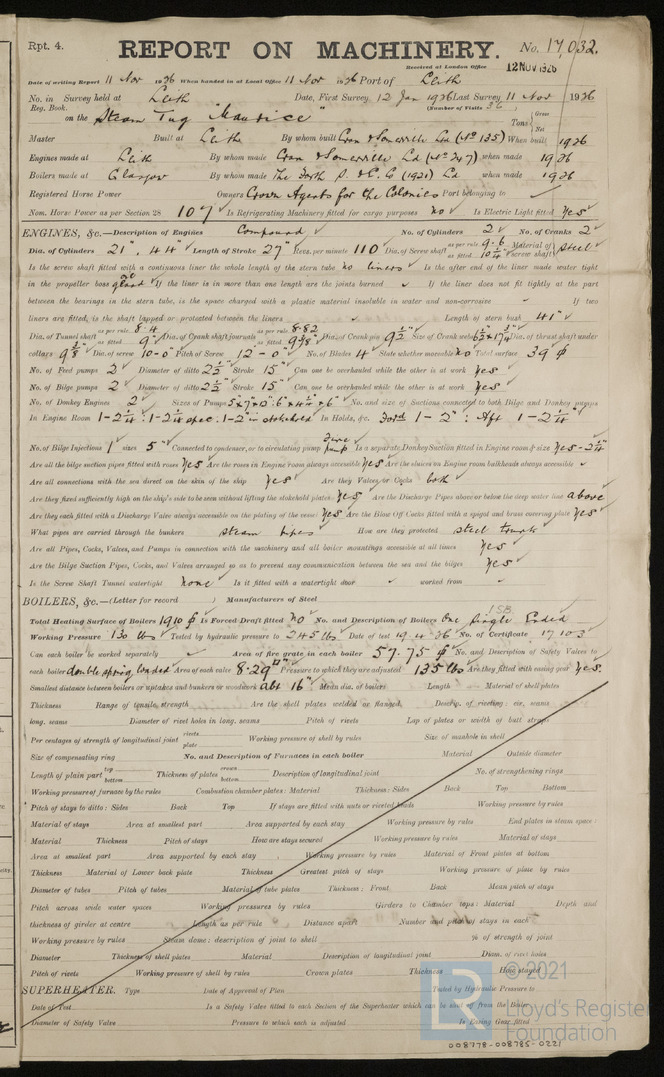 Rpt. 4.
REPORT ON MACHINERY.
No. 17,032.
Received at London Office 12 NOV 1926
Date of writing Report 11 Nov 1926 When handed in at Local Office 11 Nov 1926 Port of Leith
No. in Reg. Book. Survey held at Leith Date, First Survey 12 Jan 1926 Last Survey 11 Nov 1926
(Number of Visits 36)
on the Steam Tug "Maurice" Tons Gross Net
Master Built at Leith By whom built Cran & Somerville Ld (No 135) When built 1926
Engines made at Leith By whom made Cran & Somerville Ld (No 247) when made 1926
Boilers made at Glasgow By whom made The Forth S. & E. Co (1921) Ld when made 1926
Registered Horse Power Owners Crown Agents for the Colonies Port belonging to
Nom. Horse Power as per Section 28 107 Is Refrigerating Machinery fitted for cargo purposes no Is Electric Light fitted Yes
ENGINES, &c.—Description of Engines Compound No. of Cylinders 2 No. of Cranks 2
Dia. of Cylinders 21", 44" Length of Stroke 27" Revs. per minute 110 Dia. of Screw shaft as per rule 9.6 as fitted 10 1/4 Material of screw shaft Steel
Is the screw shaft fitted with a continuous liner the whole length of the stern tube no liners Is the after end of the liner made water tight
in the propeller boss oil gland If the liner is in more than one length are the joints burned If the liner does not fit tightly at the part
between the bearings in the stern tube, is the space charged with a plastic material insoluble in water and non-corrosive If two
liners are fitted, is the shaft lapped or protected between the liners Length of stern bush 41"
Dia. of Tunnel shaft as per rule 8.4 as fitted 9" Dia. of Crank shaft journals as per rule 8.82 as fitted 9 3/8" Dia. of Crank pin 9 1/2" Size of Crank webs 6 1/2 x 17 3/4" Dia. of thrust shaft under
collars 9 3/8" Dia. of screw 10-0" Pitch of Screw 12-0" No. of Blades 4 State whether moveable no Total surface 39 ϕ
No. of Feed pumps 2 Diameter of ditto 2 1/2" Stroke 15" Can one be overhauled while the other is at work Yes
No. of Bilge pumps 2 Diameter of ditto 2 1/2" Stroke 15" Can one be overhauled while the other is at work Yes
No. of Donkey Engines 2 Sizes of Pumps No. and size of Suctions connected to both Bilge and Donkey pumps
In Engine Room 1-2 1/4", 1-2 1/4" spec. 1-2" in stokehold In Holds, &c. Ford 1-2" : Aft 1-2 1/4"
No. of Bilge Injections 1 sizes 5" Connected to condenser, or to circulating pump pump Is a separate Donkey Suction fitted in Engine room & size Yes - 2 1/4"
Are all the bilge suction pipes fitted with roses Yes Are the roses in Engine room always accessible Yes Are the sluices on Engine room bulkheads always accessible
Are all connections with the sea direct on the skin of the ship Yes Are they Valves or Cocks both
Are they fixed sufficiently high on the ship's side to be seen without lifting the stokehold plates Yes Are the Discharge Pipes above or below the deep water line above
Are they each fitted with a Discharge Valve always accessible on the plating of the vessel Yes Are the Blow Off Cocks fitted with a spigot and brass covering plate Yes
What pipes are carried through the bunkers steam pipes How are they protected steel trunk
Are all Pipes, Cocks, Valves, and Pumps in connection with the machinery and all boiler mountings accessible at all times Yes
Are the Bilge Suction Pipes, Cocks, and Valves arranged so as to prevent any communication between the sea and the bilges Yes
Is the Screw Shaft Tunnel watertight none Is it fitted with a watertight door worked from
BOILERS, &c.—(Letter for record ) Manufacturers of Steel
1SB.
Total Heating Surface of Boilers 1910 ϕ Is Forced Draft fitted no No. and Description of Boilers One Single Ended
Working Pressure 130 lbs Tested by hydraulic pressure to 245 lbs Date of test 19.4.26 No. of Certificate 17103
Can each boiler be worked separately Area of fire grate in each boiler 57.75 ϕ No. and Description of Safety Valves to
each boiler double spring loaded Area of each valve 8.29 Pressure to which they are adjusted 135 lbs Are they fitted with easing gear Yes
Smallest distance between boilers or uptakes and bunkers or woodwork abt 16" Mean dia. of boilers Length Material of shell plates
Thickness Range of tensile strength Are the shell plates welded or flanged Descrip. of riveting: cir. seams
long. seams Diameter of rivet holes in long. seams Pitch of rivets Lap of plates or width of butt straps
Per centages of strength of longitudinal joint rivets plate Working pressure of shell by rules Size of manhole in shell
Size of compensating ring No. and Description of Furnaces in each boiler Material Outside diameter
Length of plain part top bottom Thickness of plates crown bottom Description of longitudinal joint No. of strengthening rings
Working pressure of furnace by the rules Combustion chamber plates: Material Thickness: Sides Back Top Bottom
Pitch of stays to ditto: Sides Back Top If stays are fitted with nuts or riveted heads Working pressure by rules
Material of stays Area at smallest part Area supported by each stay Working pressure by rules End plates in steam space:
Material Thickness Pitch of stays How are stays secured Working pressure by rules Material of stays
Area at smallest part Area supported by each stay Working pressure by rules Material of Front plates at bottom
Thickness Material of Lower back plate Thickness Greatest pitch of stays Working pressure of plate by rules
Diameter of tubes Pitch of tubes Material of tube plates Thickness: Front Back Mean pitch of stays
Pitch across wide water spaces Working pressures by rules Girders to Chamber tops: Material Depth and
thickness of girder at centre Length as per rule Distance apart Number and pitch of stays in each
Working pressure by rules Steam dome: description of joint to shell % of strength of joint
Diameter Thickness of shell plates Material Description of longitudinal joint Diam. of rivet holes
Pitch of rivets Working pressure of shell by rules Crown plates Thickness How stayed
SUPERHEATER. Type Date of Approval of Plan Tested by Hydraulic Pressure to
Date of Test Is a Safety Valve fitted to each Section of the Superheater which can be shut off from the Boiler
Diameter of Safety Valve Pressure to which each is adjusted Is Easing Gear fitted
LR © 2021
Lloyd's Register
Foundation
008778-008785-0221